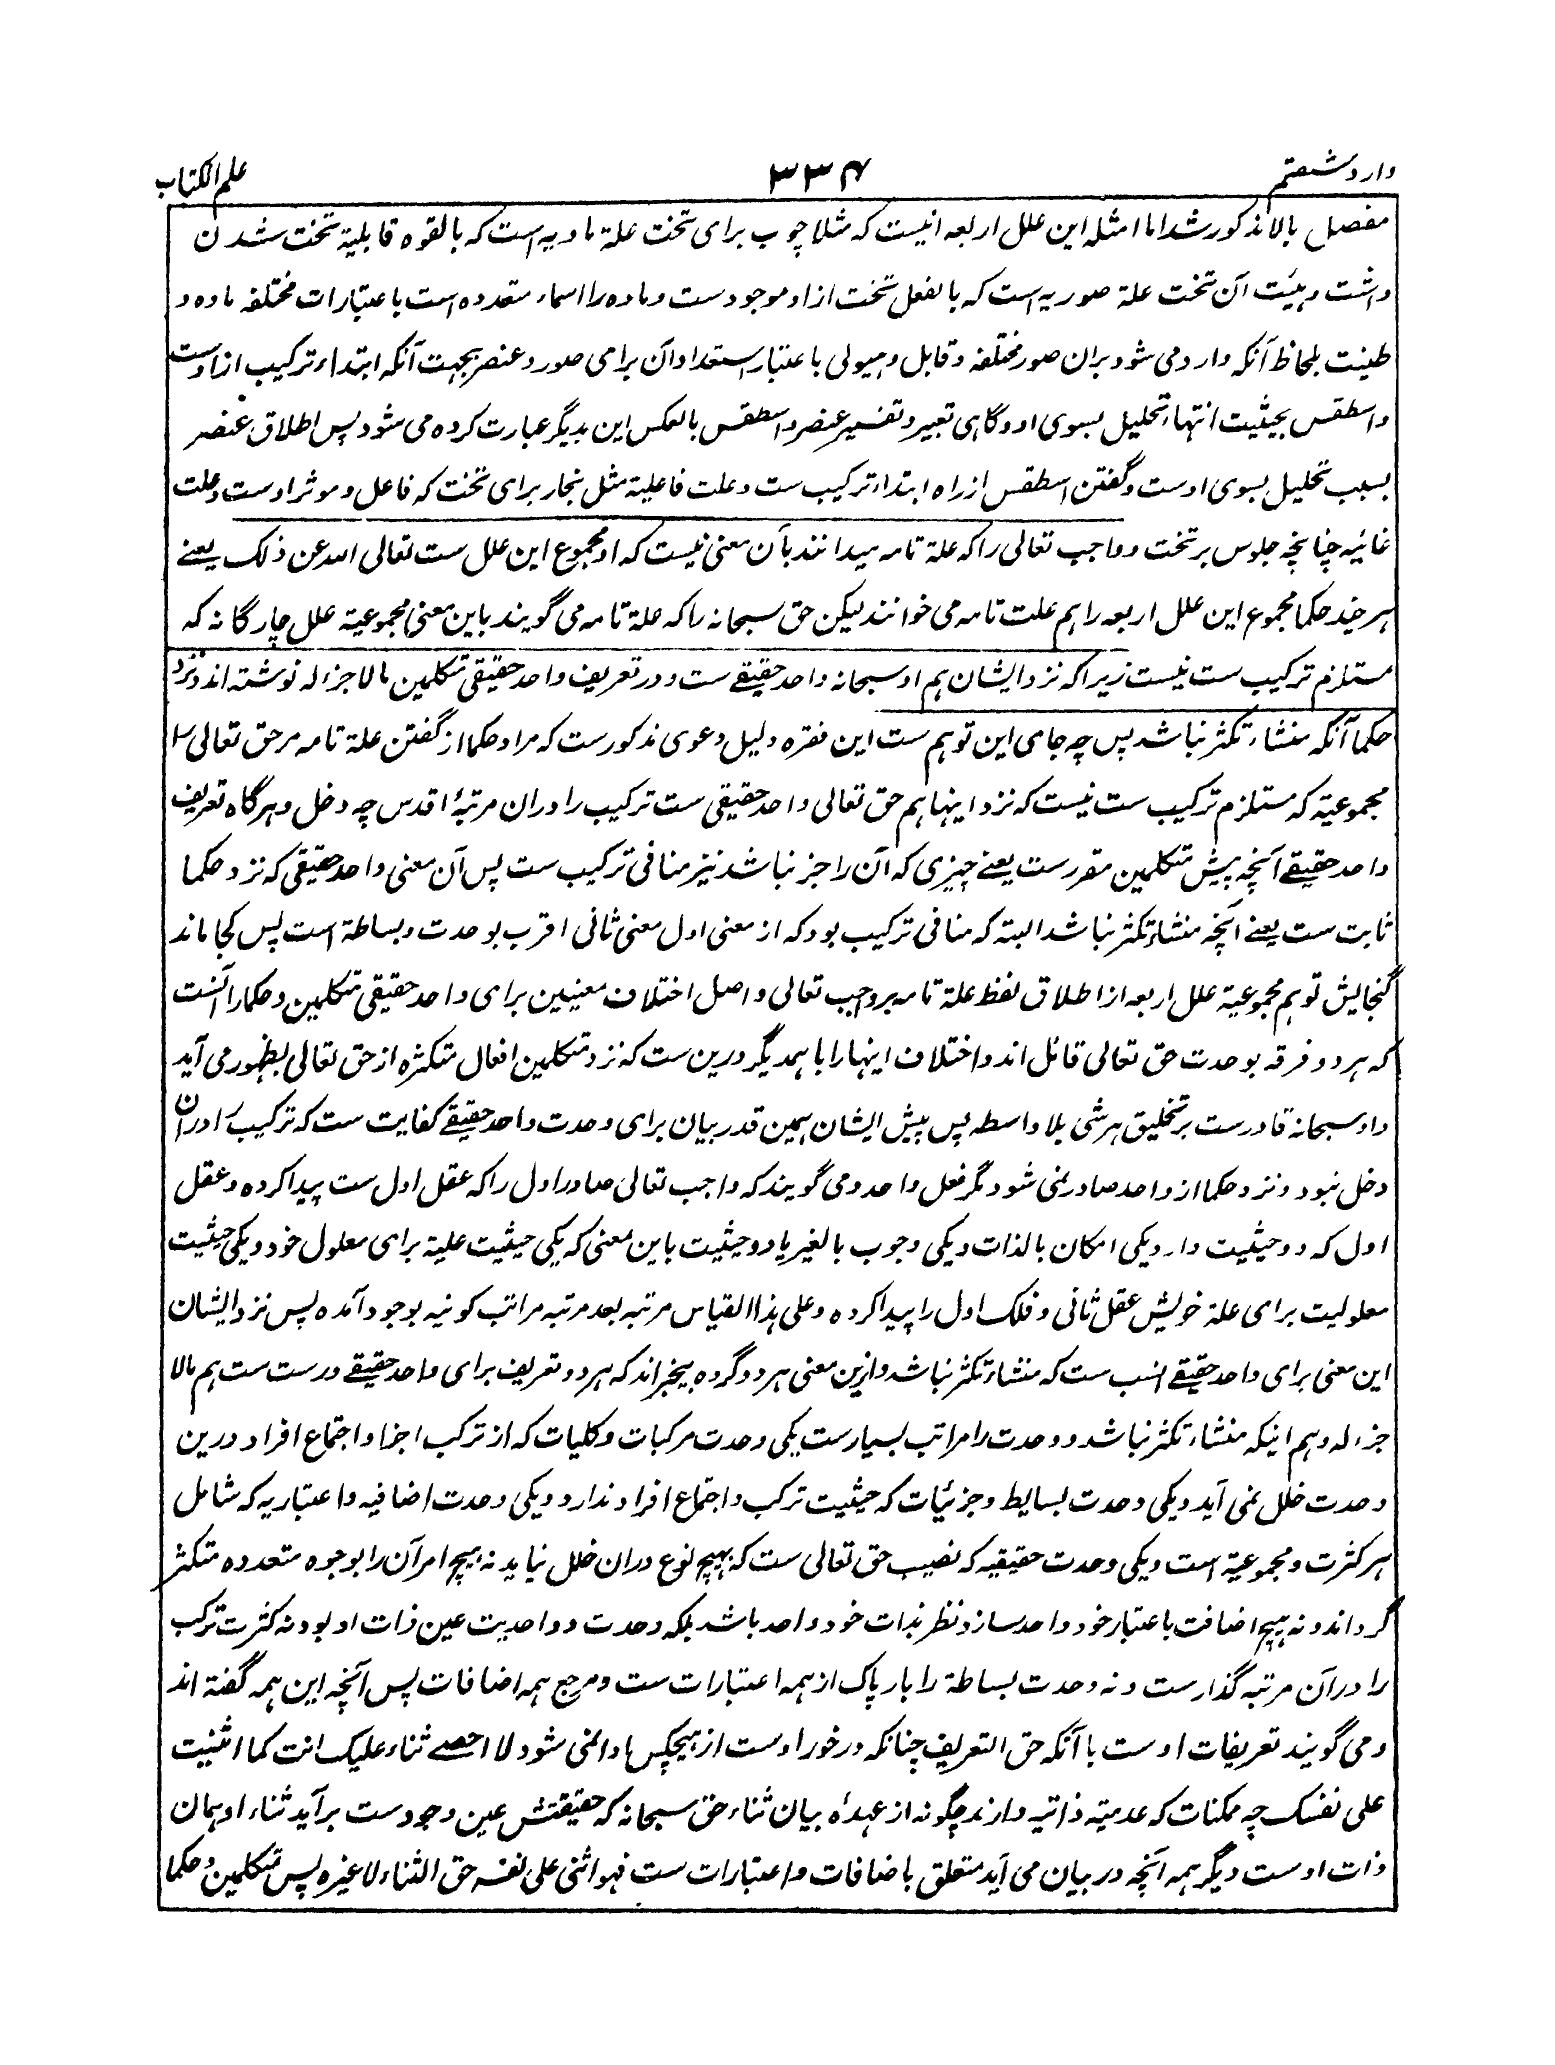 وارد شصتم ۳۳۴ علم الکتاب
مفصل بالا مذکور شد اما امثله این علل اربعه اینست که مثلا چوب برای تخت علة مادیه است که بالقوه قابلیة تخت شدن
داشت و هیئت آن تخت علة صوریه است که بالفعل تخت ازو موجودست و ماده را اسماء متعدده است باعتبارات مختلفه ماده و
طینت بلحاظ آنکه وارد می شود بران صور مختلفه و قابل و هیولی باعتبار استعداد آن برای صور و عنصر بجهت آنکه ابتداء ترکیب ازوست
و اسطقس بحیثیت انتهاء تحلیل بسوی او و گاهی تعبیر و تفسیر عنصر و اسطقس بالعکس این بدیگر عبارت کرده می شود پس اطلاق عنصر
بسبب تحلیل بسوی اوست و گفتن اسطقس از راه ابتداء ترکیب ست و علت فاعلیة مثل نجار برای تخت که فاعل و موثر اوست و علت
غائیه چنانچه جلوس بر تخت و واجب تعالی را که علة تامه میدانند بآن معنی نیست که او مجموع این علل ست تعالی الله عن ذلک یعنے
هر چند حکما مجموع این علل اربعه را هم علت تامه می خوانند لیکن حق سبحانه را که علة تامه می گویند باین معنی مجموعیة علل چارگانه که
مستلزم ترکیب ست نیست زیرا که نزد ایشان هم او سبحانه واحد حقیقے ست و در تعریف واحد حقیقی متکلمین مالا جزء له نوشته اند و نزد
حکما آنکه منشاء تکثر نباشد پس چه جای این توهم ست این فقره دلیل دعوی مذکورست که مراد حکما از گفتن علة تامه مر حق تعالی را
مجموعیة که مستلزم ترکیب ست نیست که نزد اینها هم حق تعالی واحد حقیقی ست ترکیب را دران مرتبۂ اقدس چه دخل و هرگاه تعریف
واحد حقیقے آنچه پیش متکلمین مقررست یعنے چیزی که آن را جز نباشد نیز منافی ترکیب ست پس آن معنی واحد حقیقی که نزد حکما
ثابت ست یعنے آنچه منشاء تکثر نباشد البته که منافی ترکیب بود که از معنی اول معنی ثانی اقرب بوحدت و بساطة است پس کجا ماند
گنجایش توهم مجموعیة علل اربعه از اطلاق لفظ علة تامه بر واجب تعالی و اصل اختلاف معنیین برای واحد حقیقی متکلمین و حکما را آنست
که هر دو فرقه بوحدت حق تعالی قائل اند و اختلاف اینها را با همدیگر درین ست که نزد متکلمین افعال متکثره از حق تعالی بظهور می آید
و او سبحانه قادرست بر تخلیق هر شی بلا واسطه پس پیش ایشان همین قدر بیان برای وحدت واحد حقیقے کفایت ست که ترکیب را دران
دخل نبود و نزد حکما از واحد صادر نمی شود مگر فعل واحد و می گویند که واجب تعالی صادر اول را که عقل اول ست پیدا کرده و عقل
اول که دو حیثیت دارد یکی امکان بالذات و یکی وجوب بالغیر یا دو حیثیت باین معنی که یکی حیثیت علیة برای معلول خود و یکی حیثیت
معلولیت برای علة خویش عقل ثانی و فلک اول را پیدا کرده و علی هذا القیاس مرتبه بعد مرتبه مراتب کونیه بوجود آمده پس نزد ایشان
این معنی برای واحد حقیقے انسب ست که منشاء تکثر نباشد و ازین معنی هر دو گروه بیخبر اند که هر دو تعریف برای واحد حقیقے درست ست هم مالا
جزء له و هم اینکه منشاء تکثر نباشد و وحدت را مراتب بسیارست یکی وحدت مرکبات و کلیات که از ترکب اجزا و اجتماع افراد درین
وحدت خلل نمی آید و یکی وحدت بسایط و جزئیات که حیثیت ترکب و اجتماع افراد ندارد و یکی وحدت اضافیه و اعتباریه که شامل
هر کثرت و مجموعیة است و یکی وحدت حقیقیه که نصیب حق تعالی ست که بهیچ نوع دران خلل نیاید نه هیچ امر آن را بوجوه متعدده متکثر
گرداند و نه هیچ اضافت باعتبار خود واحد سازد و نظر بذات خود واحد باشد بلکه وحدت و واحدیت عین ذات او بود نه کثرت ترکب
را در آن مرتبه گذارست و نه وحدت بساطة را بار پاک از همه اعتبارات ست و مرجع همه اضافات پس آنچه این همه گفته اند
و می گویند تعریفات اوست با آنکه حق التعریف چنانکه در خور اوست از هیچکس ادا نمی شود لا احصے ثناء علیک انت کما اثنیت
علی نفسک چه ممکنات که عدمیة ذاتیه دارند چگونه از عهدۂ بیان ثناء حق سبحانه که حقیقتش عین وجودست برآید ثناء او همان
ذات اوست دیگر همه آنچه در بیان می آید متعلق باضافات و اعتبارات ست فهو اثنی علی نفسه حق الثناء لا غیره پس متکلمین و حکما